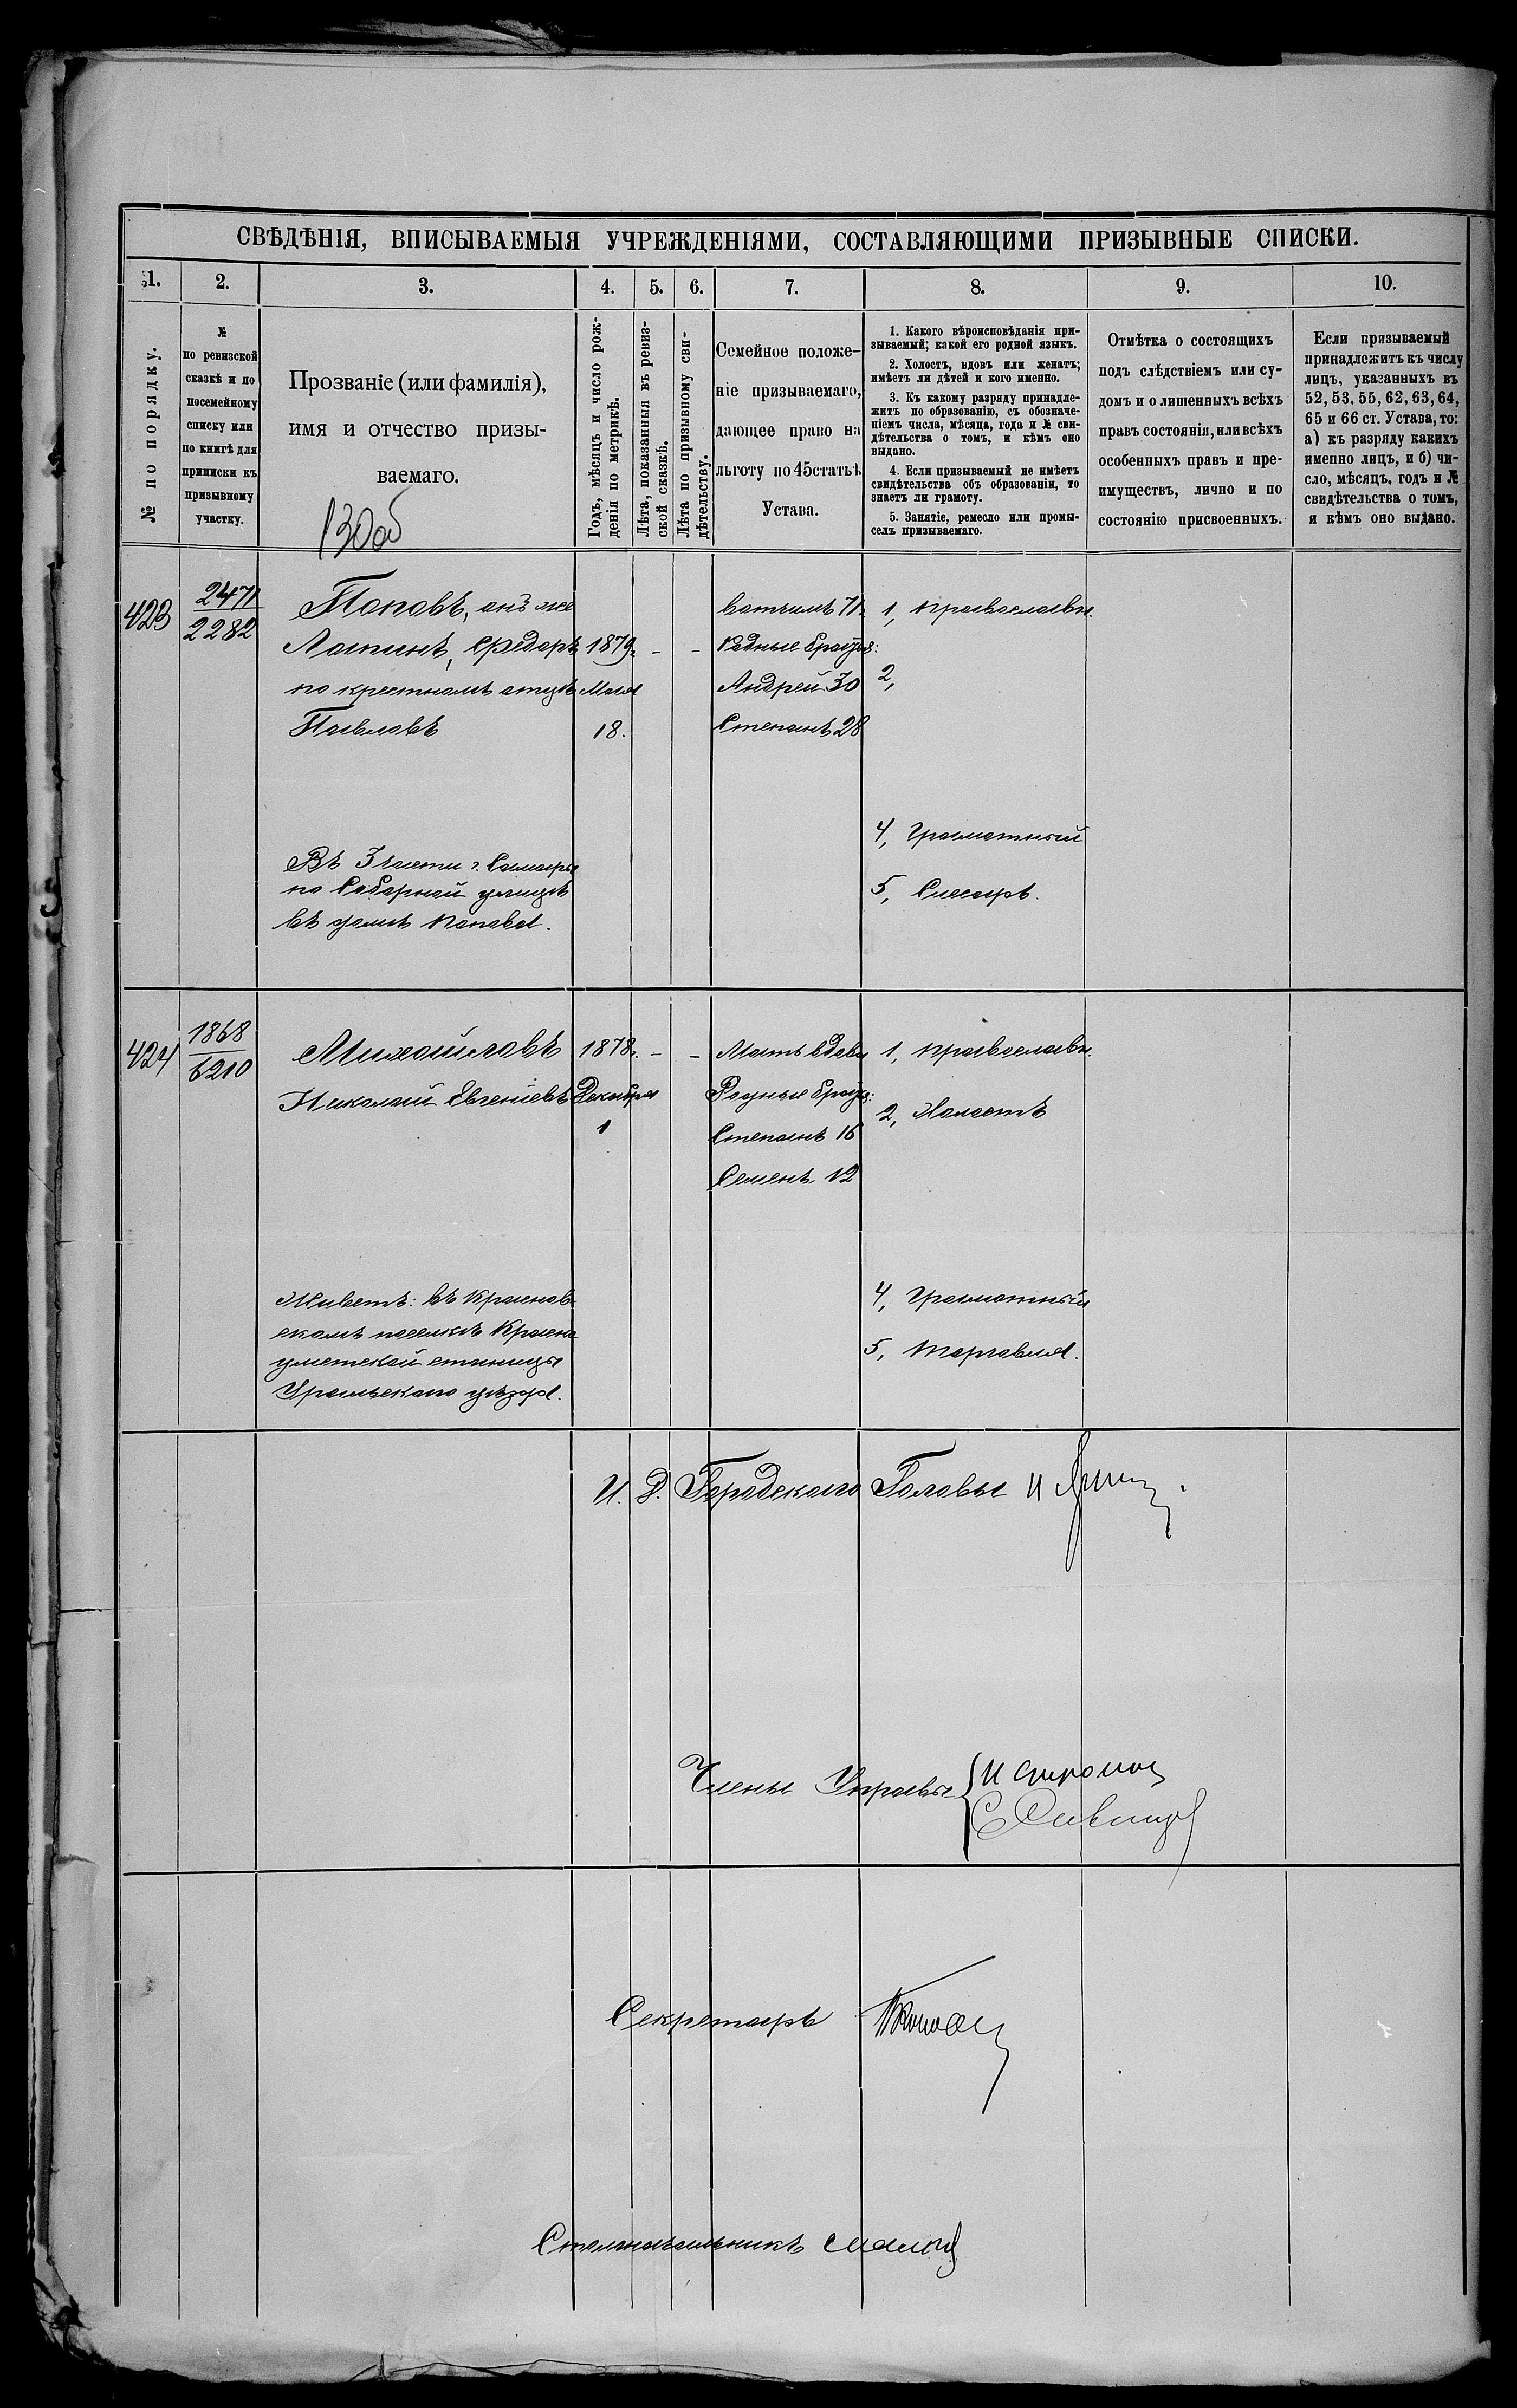 СВѢДѢНІЯ, ВПИСЫВАЕМЫЯ УЧРЕЖДЕНІЯМИ, СОСТАВЛЯЮЩИМИ ПРИЗЫВНЫЕ СПИСКИ.
1.
2.
3.
4.
5.
6.
7.
8.
9.
10.
№ по порядку.
№
по ревизской
сказкѣ и по
посемейному
списку или
по книгѣ для
приписки къ
призывному
участку.
Прозваніе (или фамилія),
имя и отчество призы-
ваемаго.
130об
Годъ, мѣсяцъ и число рож-
денія по метрикѣ.
Лѣта, показанныя въ ревиз-
ской сказкѣ.
Лѣта по призывному сви-
дѣтельству.
Семейное положе-
ніе призываемаго,
дающее право на
льготу по 45 статьѣ
Устава.
1. Какого вѣроисповѣданія при-
зываемый; какой его родной языкъ.
2. Холостъ, вдовъ или женатъ;
имѣетъ ли дѣтей и кого именно.
3. Къ какому разряду принадле-
житъ по образованію, съ обозначе-
ніемъ числа, мѣсяца, года и № сви-
дѣтельства о томъ, и кѣмъ оно
выдано.
4. Если призываемый не имѣетъ
свидѣтельства объ образованіи, то
знаетъ ли грамоту.
5. Занятіе, ремесло или промы-
селъ призываемаго.
Отмѣтка о состоящихъ
подъ слѣдствіемъ или су-
домъ и о лишенныхъ всѣхъ
правъ состоянія, или всѣхъ
особенныхъ правъ и пре-
имуществъ, лично и по
состоянію присвоенныхъ.
Если призываемый
принадлежитъ къ числу
лицъ, указанныхъ въ
52, 53, 55, 62, 63, 64,
65 и 66 ст. Устава, то:
а) къ разряду какихъ
именно лицъ, и б) чи-
сло, мѣсяцъ, годъ и №
свидѣтельства о томъ,
и кѣмъ оно выдано.
423
2471
2282
Поповъ, онъ же
Лапинъ, Ѳедоръ
по крестному отцу
Павловъ
1879г.
Мая
18.
-
-
Вотчимъ 71
Родные братья:
Андрей 30
Степанъ 28
1, православн.
2,
4, Грамотный
5, Слесарь.
Въ 3 части г. Самары
по Соборной улицѣ
въ домѣ Попова.
424
1868
6210
Михайловъ
Николай Евгеніевъ
1878г.
Декабря
1
-
-
Мать вдова
Родные братья:
Степанъ 16
Семенъ 12
1, православн.
2, Холостъ
4, Грамотный
5, торговля.
Живетъ: въ Краснов-
скомъ поселкѣ Красно
уметской станицы
Уральскаго уѣзда.
И. Д. Городскаго Головы
Члены Управы
Секретарь
Столоначальникъ